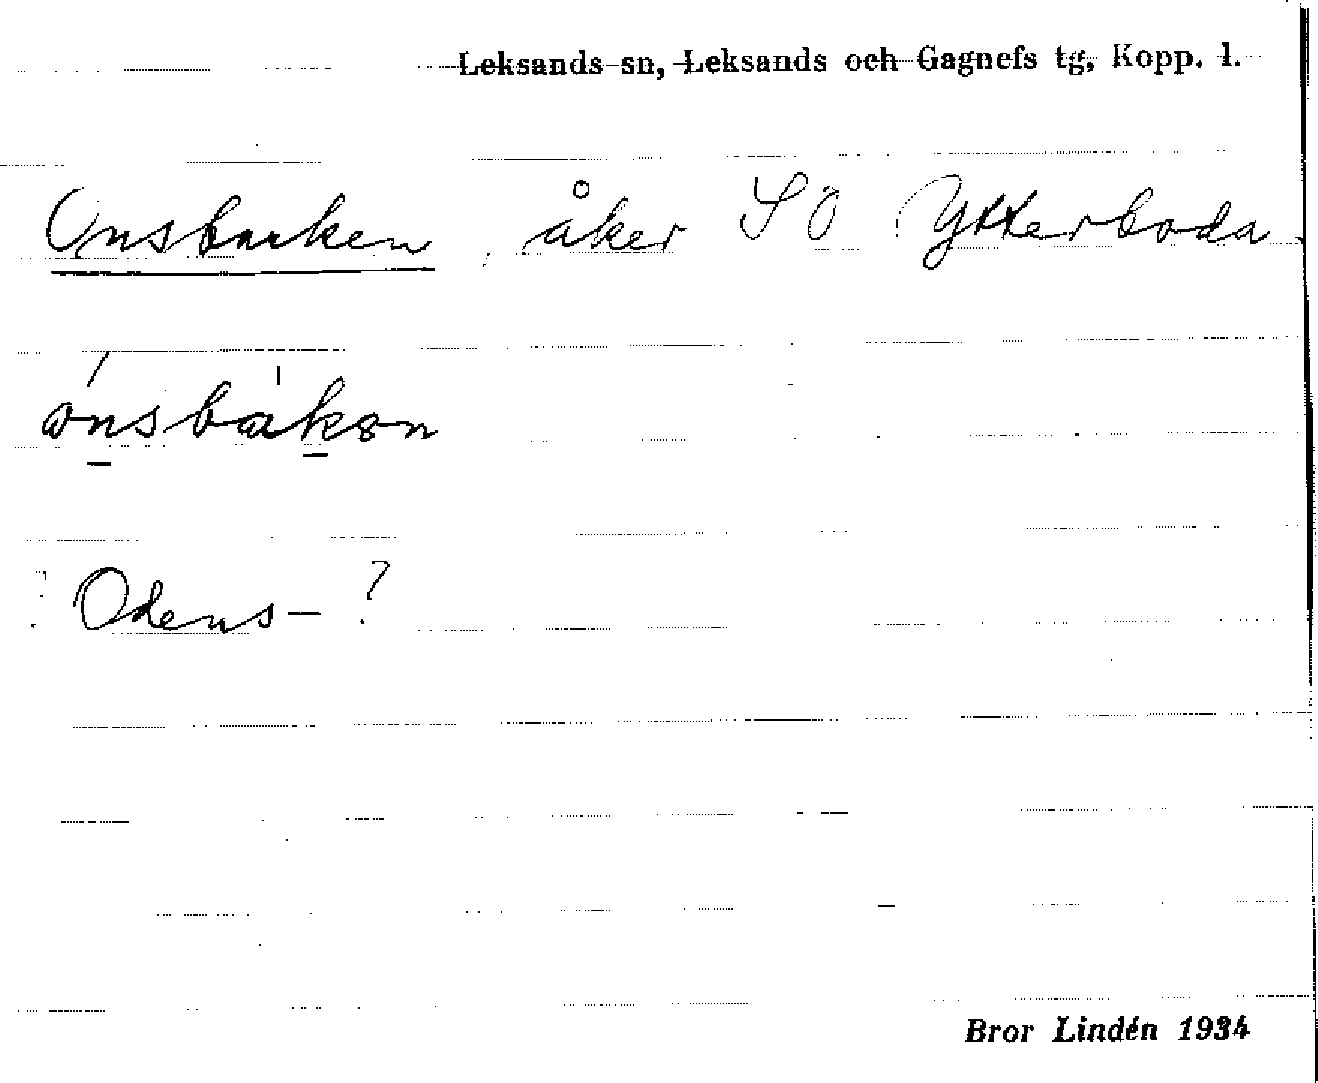 Leksands sn, Leksands och Gagnefs tg, Kopp. l.
Onsbacken, åker SÖ Ytterboda
Odens- ?
Bror Lindén 1934